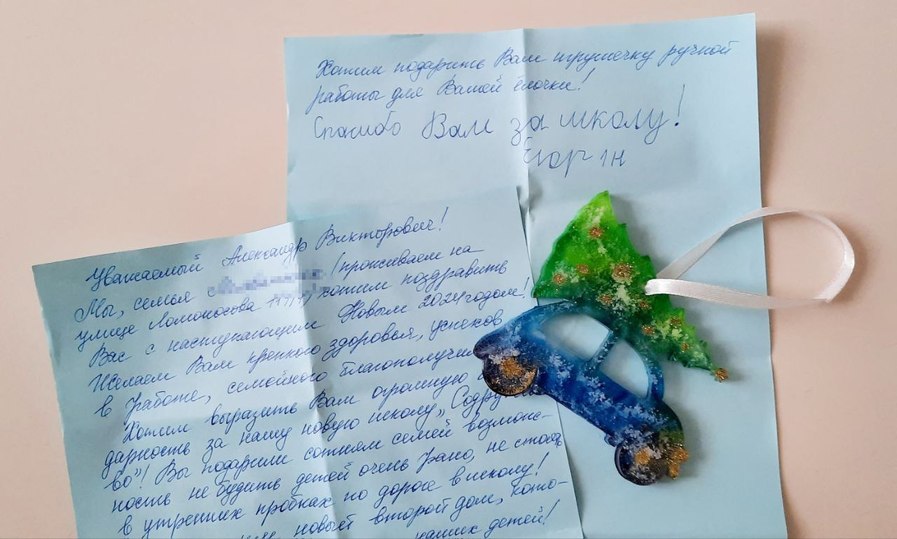 Уважаемый Александр Викторович!
Мы, семья (проживаем на
улице Ломоносова хотим поздравить
Вас с наступающим Новым 2024 годом!
Желаем Вам крепкого здоровья, успехов
в работе, семейного благополучия
Хотим выразить Вам огромную
дарность за нашу новую школу „Содруж
во"! Вы подарили сотням семей возмож-
ность не будить детей очень рано, не стоять
в утренних пробках по дороге в школу!
новый второй дом, кото-
наших детей!
Хотим подарить Вам игрушечку ручной
работы для Вашей ёлочки!
Спасибо Вам за школу!